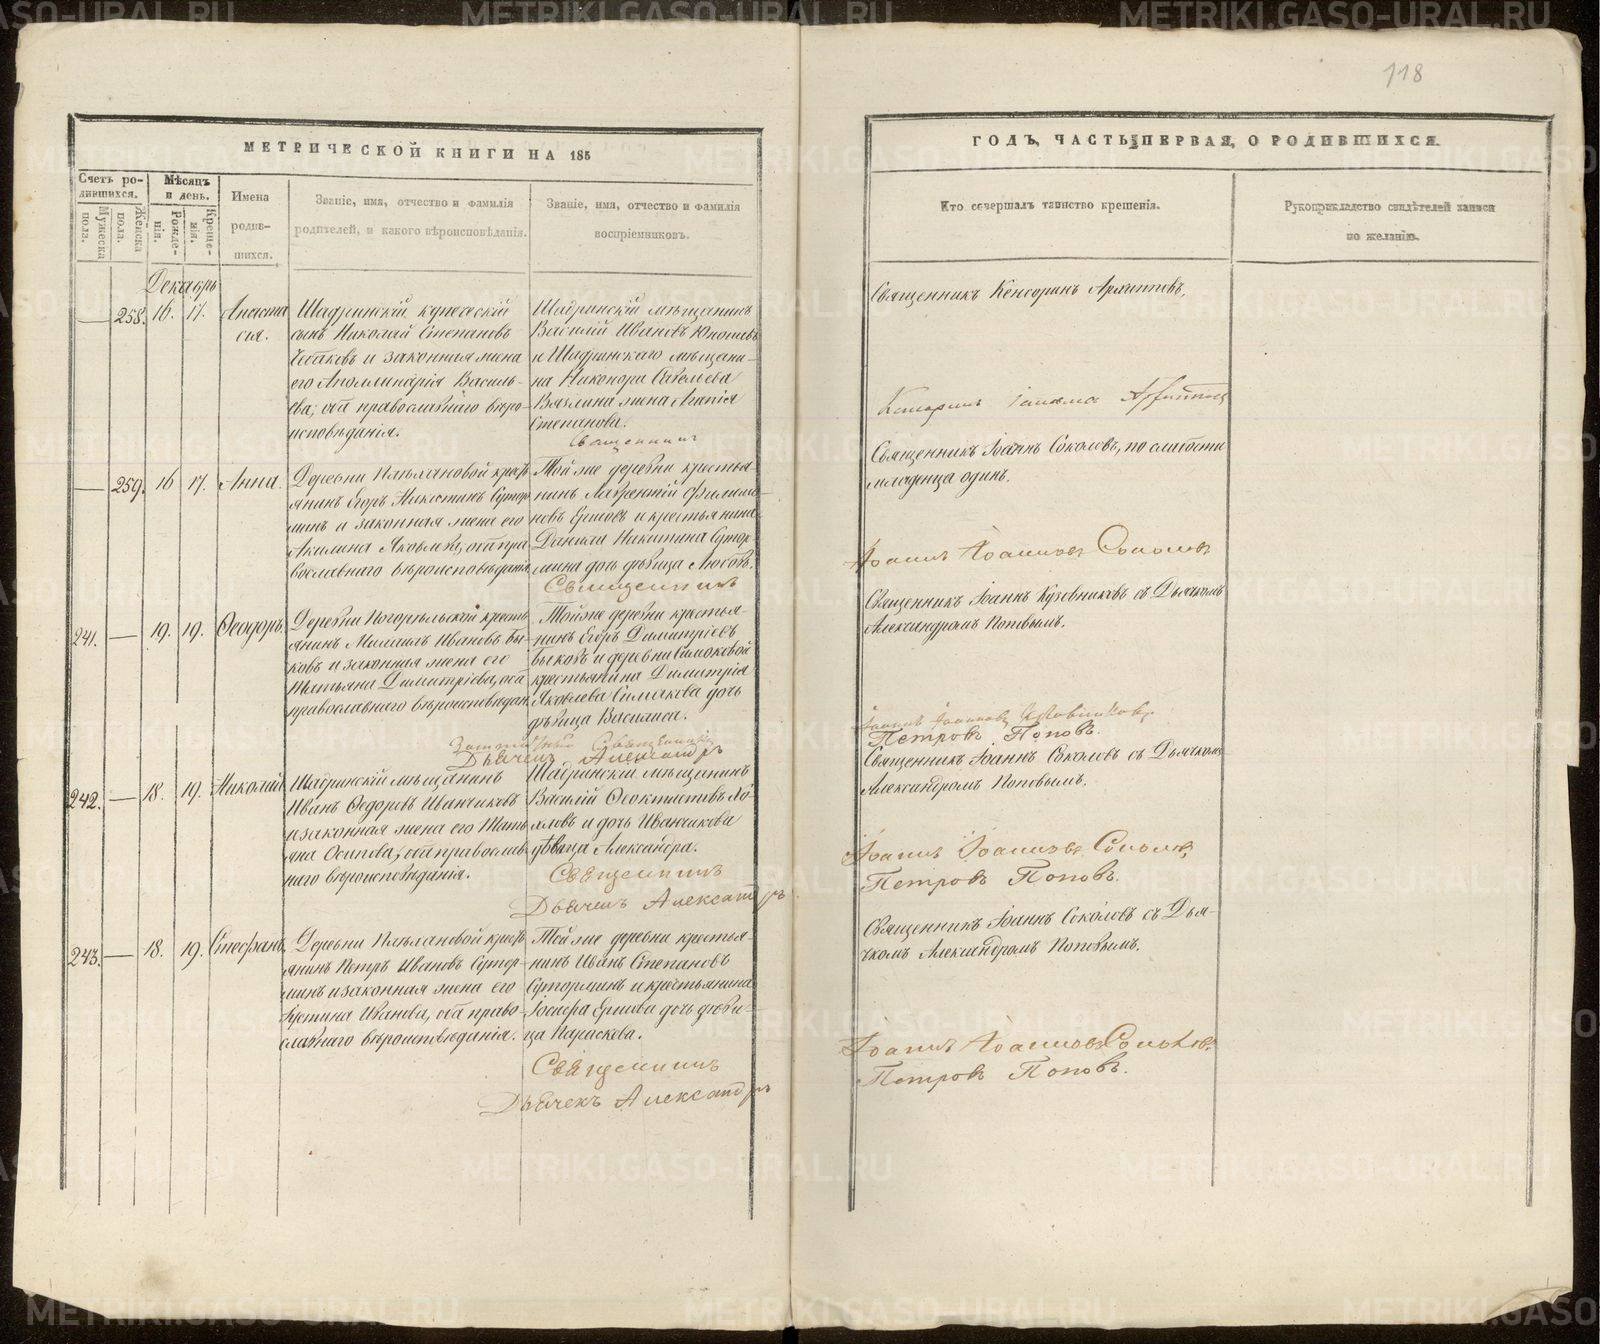 118
МЕТРИЧЕСКОЙ КНИГИ НА 185
ГОДЪ, ЧАСТЬ ПЕРВАЯ, О РОДИВШИХСЯ.
Счетъ ро-
дившихся.
Мужеска
пола.
Женска
пола.
Мѣсяцъ
и день.
Рожде-
нія.
Креще-
нія.
Имена
родив-
шихся.
Званіе, имя, отчество и фамилія
родителей, и какого вѣроисповѣданія.
Званіе, имя, отчество и фамилія
воспріемниковъ.
Кто совершалъ таинство крещенія.
Рукоприкладство свидѣтелей записи
по желанію.
Декабрь
— 258. 16. 17. Анаста
сія.
Шадринскій купеческій
сынъ Николай Степановъ
и законная жена
его Аполлинарія Василь-
ева, оба православнаго вѣро-
исповѣданія.
Шадринскій мѣщанинъ
Василій Ивановъ
и Шадринскаго мѣщани-
на Никонора Савельева
жена Агапія
Степанова.
Священникъ
Священникъ Кенсоринъ
— 259. 16 17. Анна.
Деревни Плѣхановой кресть
янинъ Егоръ Никитинъ Сутор
минъ и законная жена его
Акилина Яковлева, оба пра
вославнаго вѣроисповѣданія
Той же деревни крестья-
нинъ Лаврентій Филимо-
новъ Ершовъ и крестьянина
Даніила Никитина Сутор-
мина дочь дѣвица Любовь.
Священникъ
Священникъ Іоаннъ Соколовъ, по слабости
младенца одинъ.
Іоаннъ Іоанновъ Соколовъ
241. — 19. 19. Ѳеодоръ.
Деревни Погорѣльской кресть
янинъ Михаилъ Ивановъ Бы-
ковъ и законная жена его
Татьяна Димитріева, оба
православнаго вѣроисповѣдан.
Той же деревни крестья-
нинъ Егоръ Димитріевъ
Быковъ и деревни Симаковой
крестьянина Димитрія
Яковлева Симакова дочь
дѣвица Васса.
Священникъ
Дьячекъ Александръ
Священникъ Іоаннъ Кузовниковъ съ Дьячкомъ
Александромъ Поповымъ.
Іоаннъ Іоанновъ Кузовниковъ
Петровъ Поповъ.
242. — 18. 19. Николай
Шадринскій мѣщанинъ
Иванъ Ѳедоровъ Иванчиковъ
и законная жена его Тать
яна Осипова, оба православ-
наго вѣроисповѣданія.
Шадринскій мѣщанинъ
Василій Ѳеоктистовъ Хо-
хловъ и дочь Иванчикова
дѣвица Александра.
Священникъ
Дьячекъ Александръ
Священникъ Іоаннъ Соколовъ съ Дьячкомъ
Александромъ Поповымъ.
Іоаннъ Іоанновъ Соколовъ
Петровъ Поповъ.
243. — 18. 19. Стефанъ.
Деревни Плѣхановой кресть
янинъ Петръ Ивановъ Сутор-
минъ и законная жена его
Іустина Иванова, оба право-
славнаго вѣроисповѣданія.
Той же деревни крестья-
нинъ Иванъ Степановъ
Суторминъ и крестьянина
Іосифа Ершова дочь дѣви-
ца Параскева.
Священникъ
Дьячекъ Александръ
Священникъ Іоаннъ Соколовъ съ Дья-
чкомъ Александромъ Поповымъ.
Іоаннъ Іоанновъ Соколовъ
Петровъ Поповъ.
METRIKI.GASO-URAL.RU